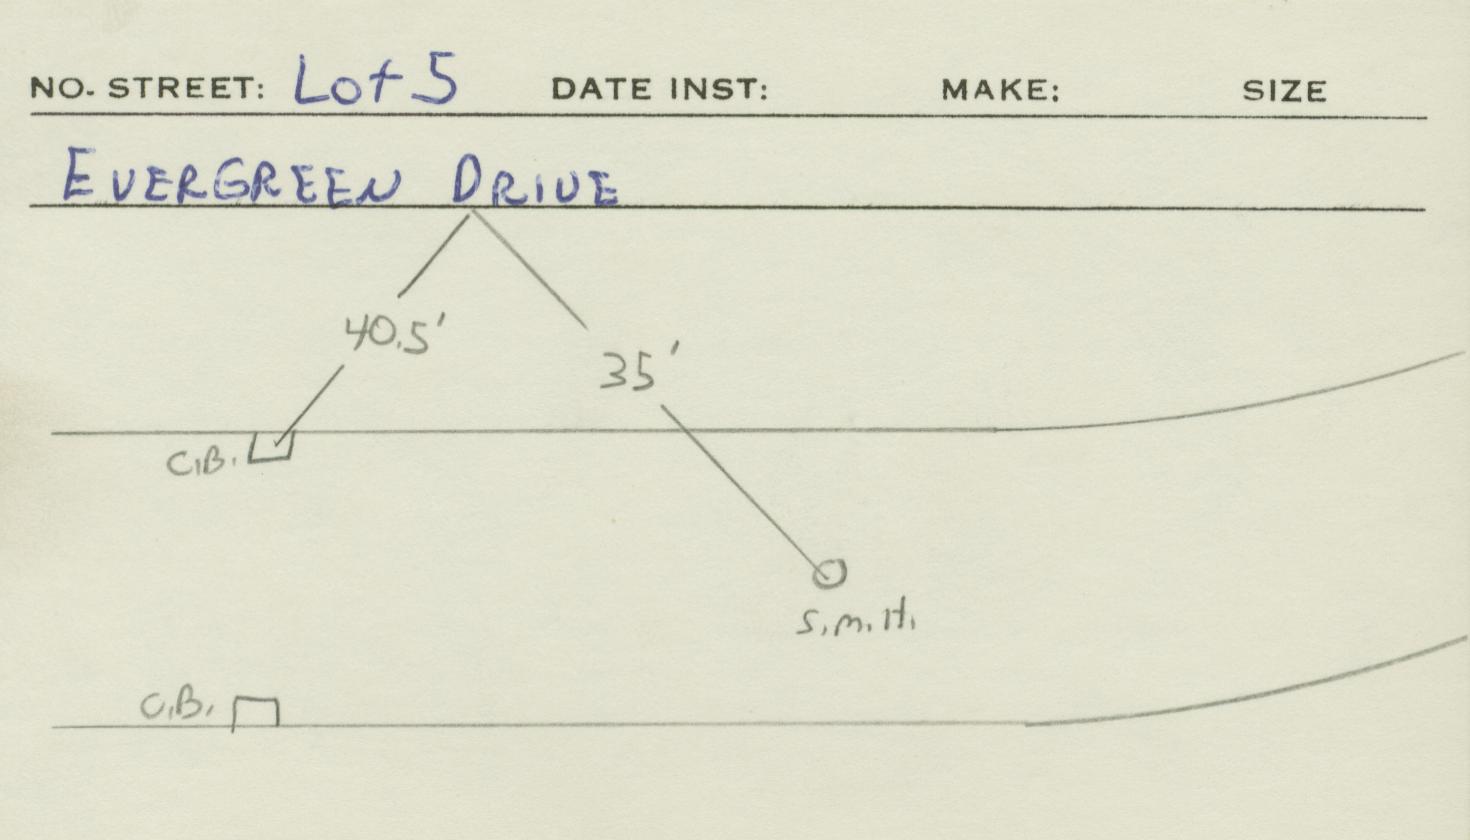 NO. STREET: Lot 5 DATE INST: MAKE: SIZE
EVERGREEN DRIVE
40.5'
35'
C.B.
S.M.H.
C.B.